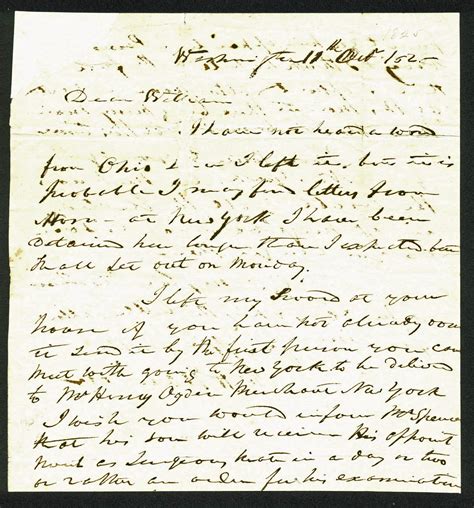 1825
Washington 11th Octr 1825
Dear William
I have not heard a word
from Ohio since I left it, but it is
probable I may find letters from
Home at New York I have been
detained here longer than I expected but
shall set out on Monday.
I left my Sword at your
house if you have not already
it send it by the first person you can
meet with going to New York to be delivd
to Mr Henry Ogden Merchant New York
I wish you would inform Mr Spence
that his son will receive his appoint
ment as Surgeons mate in a day or two
or rather an order for his examination